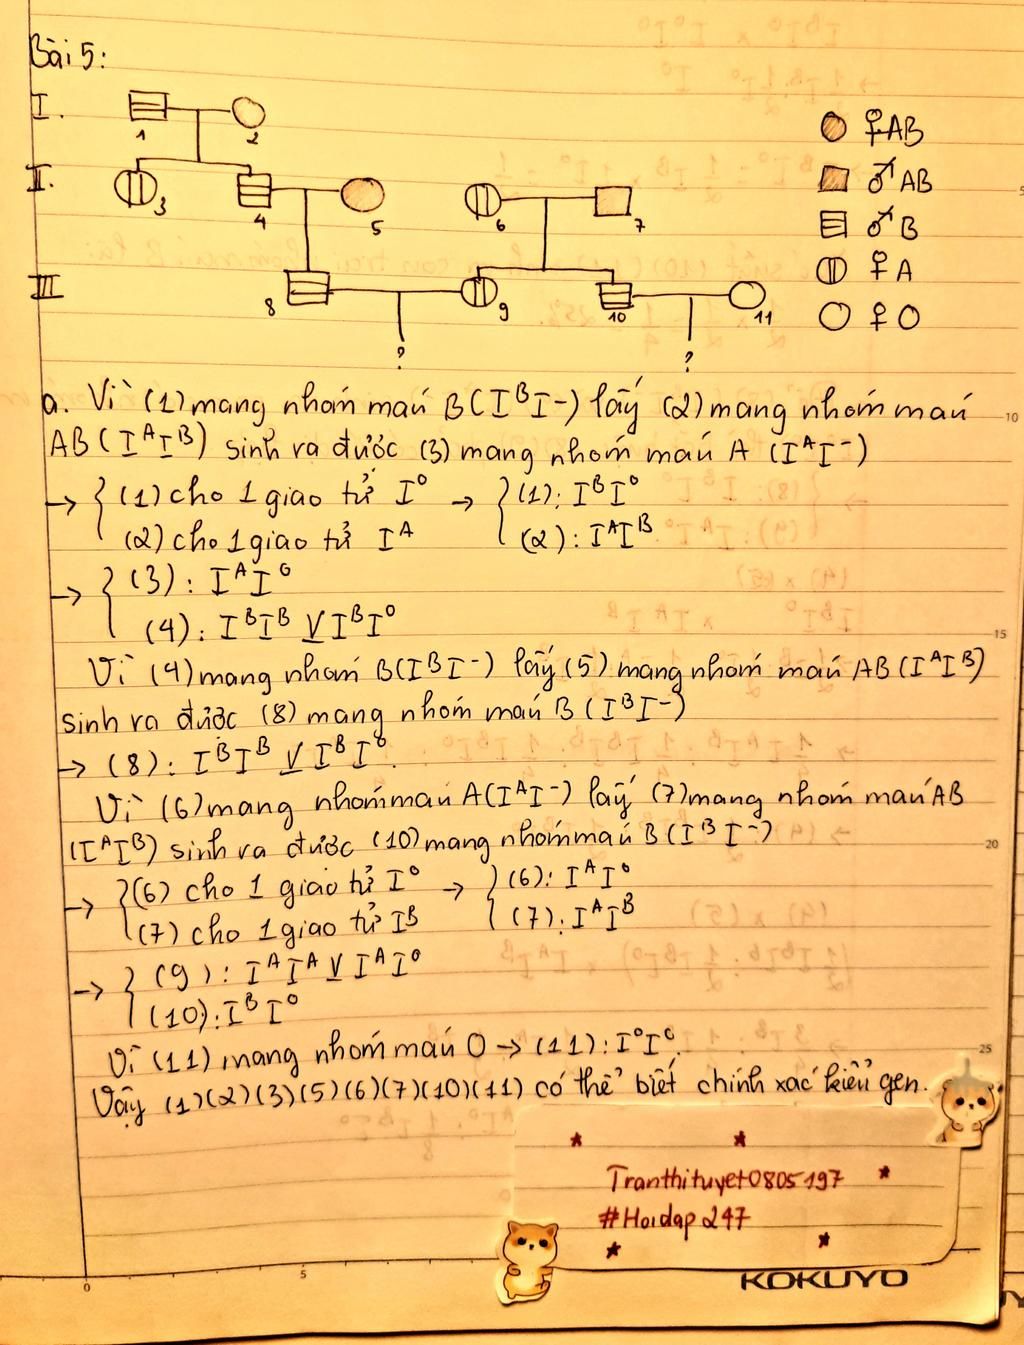 Bài 5:
I.
1
2
♀AB
II.
3
4
5
6
7
♂AB
♂B
III
8
9
10
11
♀A
♀O
?
?
a. Vì (1) mang nhóm máu B(IᴮI-) lấy (2) mang nhóm máu
AB(IᴬIᴮ) sinh ra được (3) mang nhóm máu A (IᴬI-)
→ { (1) cho 1 giao tử I⁰ → { (1): IᴮI⁰
(2) cho 1 giao tử Iᴬ (2): IᴬIᴮ
→ { (3): IᴬI⁰
(4): IᴮIᴮ V IᴮI⁰
Vì (4) mang nhóm B(IᴮI-) lấy (5) mang nhóm máu AB(IᴬIᴮ)
sinh ra được (8) mang nhóm máu B(IᴮI-)
→ (8): IᴮIᴮ V IᴮI⁰.
Vì (6) mang nhóm máu A(IᴬI-) lấy (7) mang nhóm máu AB
(IᴬIᴮ) sinh ra được (10) mang nhóm máu B(IᴮI-)
→ { (6) cho 1 giao tử I⁰ → { (6): IᴬI⁰
(7) cho 1 giao tử Iᴮ (7): IᴬIᴮ
→ { (9): IᴬIᴬ V IᴬI⁰
(10): IᴮI⁰
Vì (11) mang nhóm máu O → (11): I⁰I⁰.
Vậy (1)(2)(3)(5)(6)(7)(10)(11) có thể biết chính xác kiểu gen.
Tranthituyet0805197
#Hoidap247
KOKUYO
0
5
5
10
15
20
25